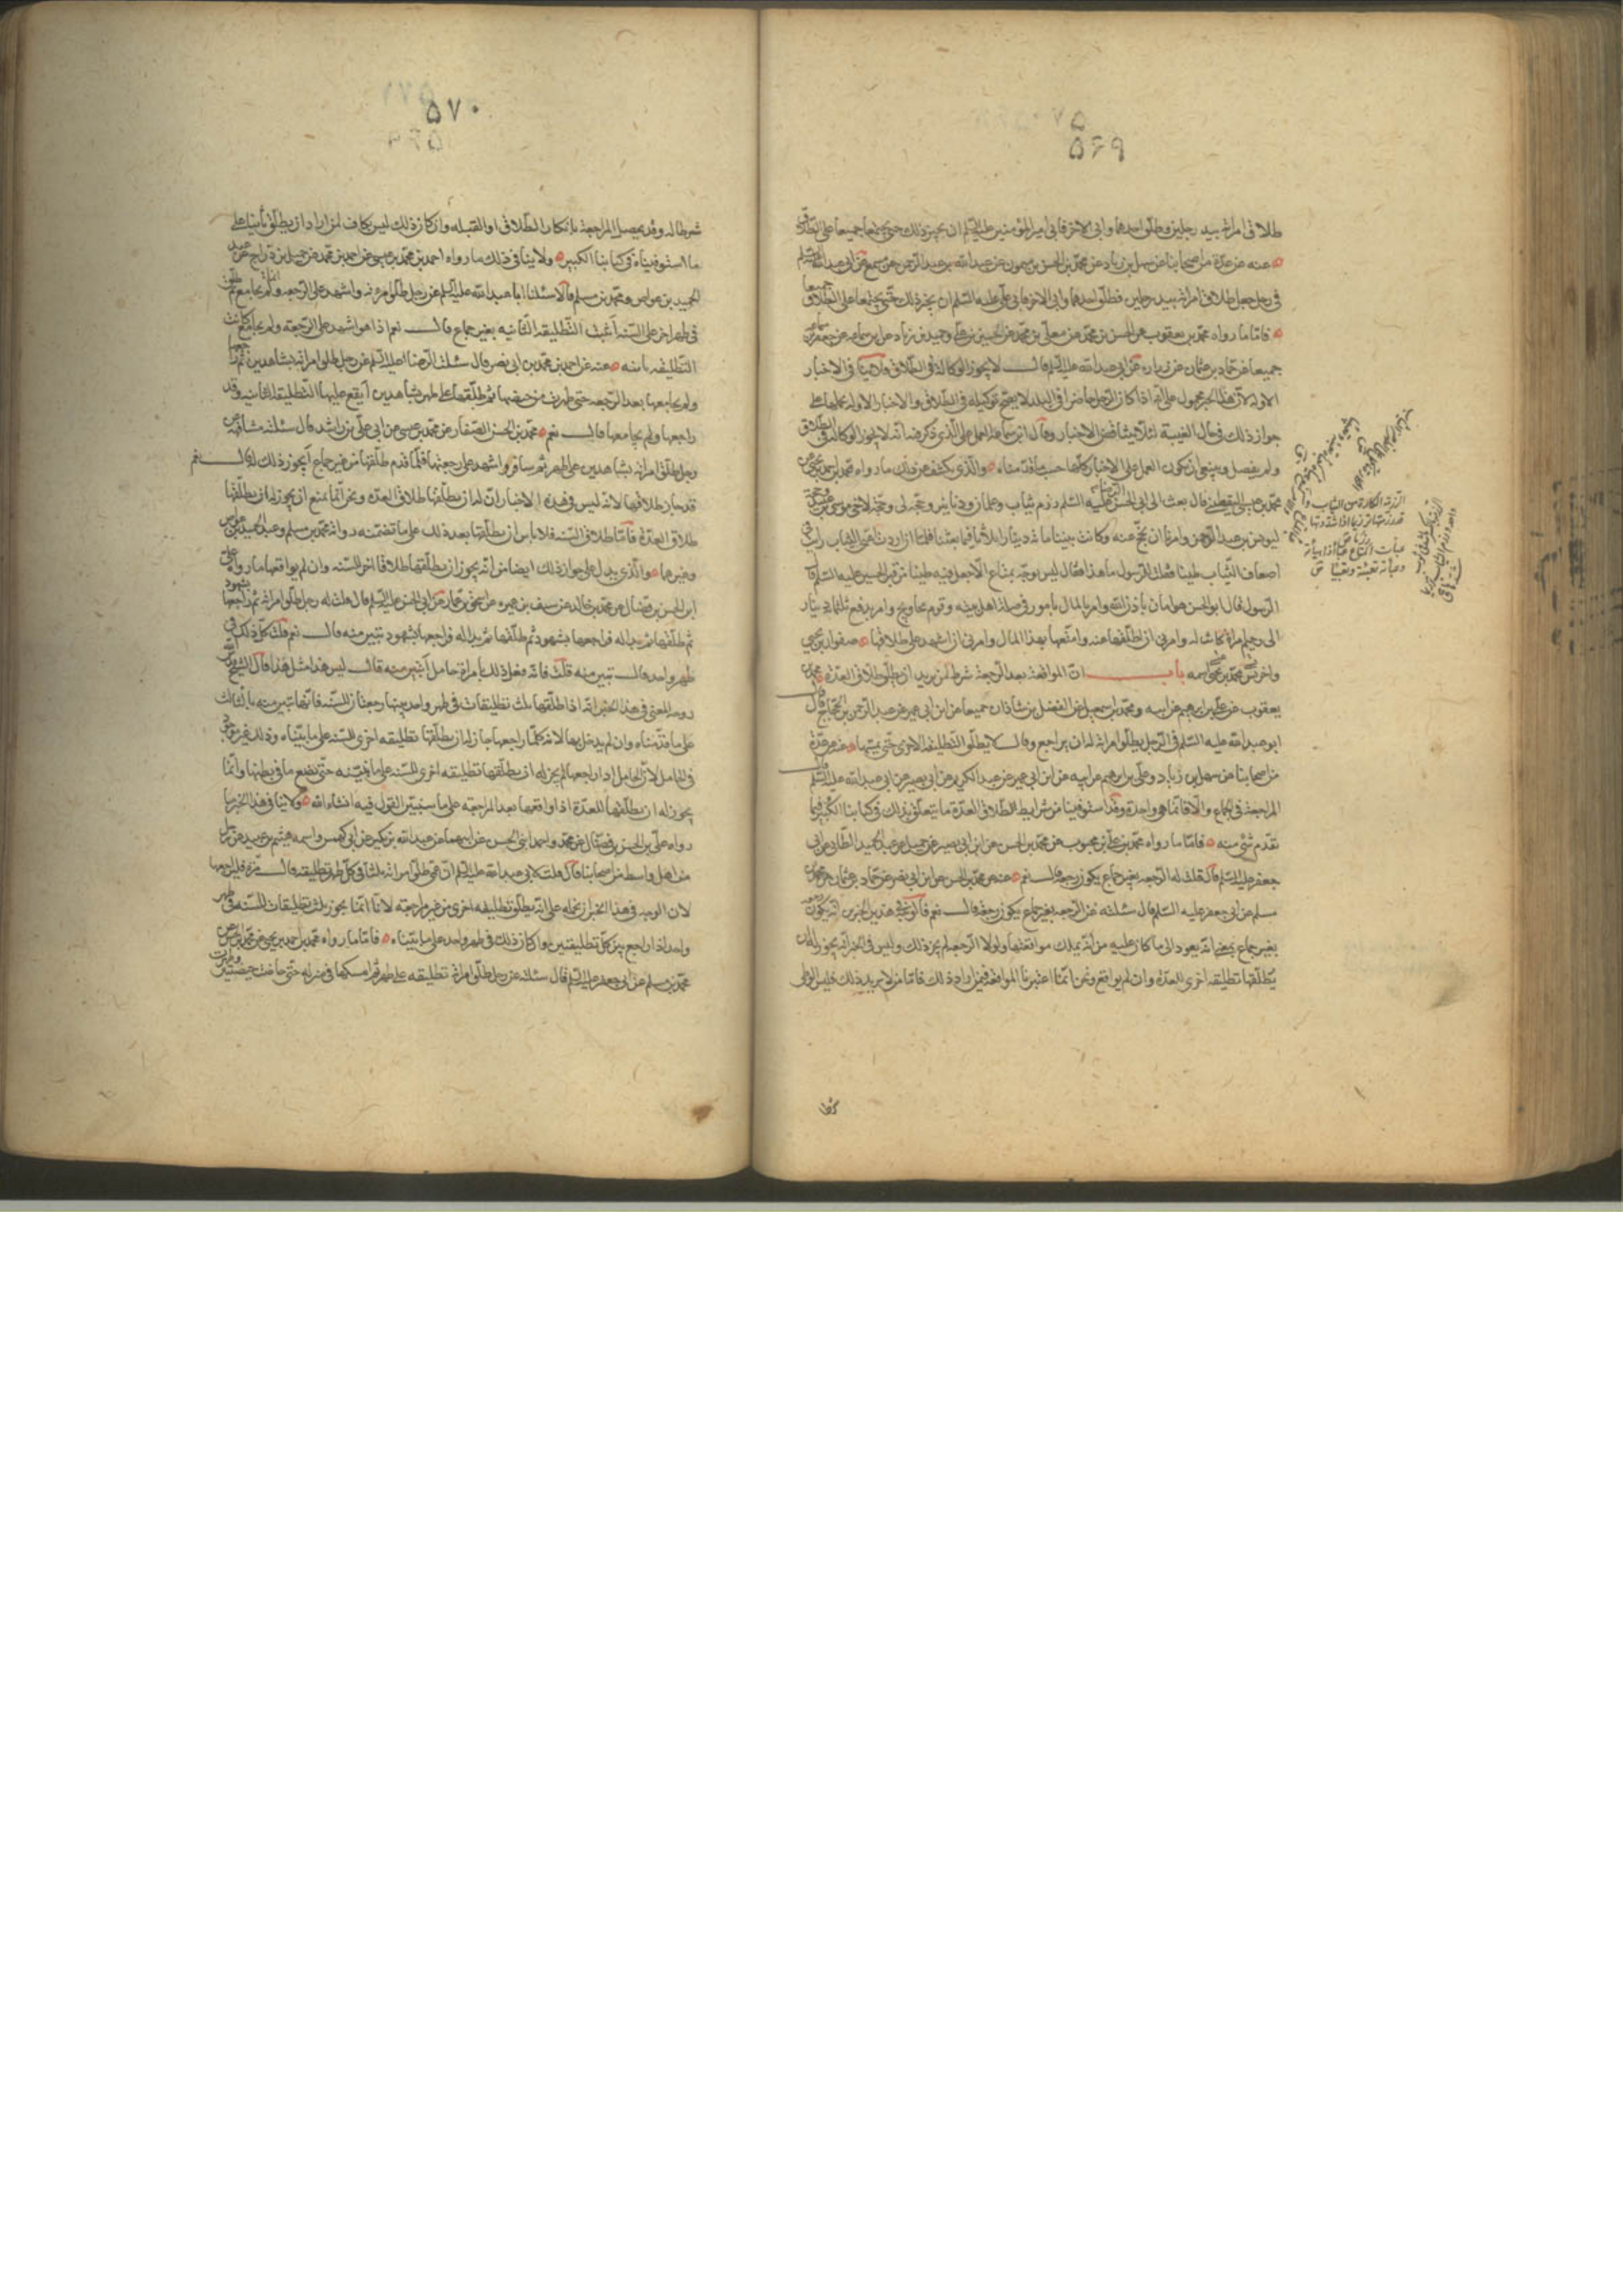 ۵۶۹
طلاق امراته بيد رجلين فطلق احدهما وابى الاخر فابى امير المؤمنين عليه السلم ان يجيز ذلك حتى يجتمعا جميعا على الطلاق
عنه عن عدة من اصحابنا عن سهل بن زياد عن محمد بن الحسن بن شمون عن عبد الله بن عبد الرحمن عن مسمع عن ابى عبد الله عليه السلم
فى رجل جعل طلاق امراته بيد رجلين فطلق احدهما وابى الاخر فابى على عليه السلم ان يجيز ذلك حتى يجتمعا على الطلاق جميعا
فاما ما رواه محمد بن يعقوب عن الحسين بن محمد عن معلى بن محمد عن الحسن بن على وحميد بن زياد عن ابن سماعه عن جعفر بن سماعه
جميعا عن حماد بن عثمان عن زراره عن ابى عبد الله عليه السلم قال لا يجوز الوكالة فى الطلاق فلا ينافى الاخبار
الاولة لان هذا الخبر محمول على انه اذا كان الرجل حاضرا فى البلد لا يصح توكيله فى الطلاق والاخبار الاولة نحملها على
جواز ذلك فى حال الغيبة لئلا يتناقض الاخبار وقال ابن سماعه العمل على الذى ذكر فيه انه لا يجوز الوكالة فى الطلاق
ولم يفصل وينبغى ان يكون العمل على الاخبار كلها حسب ما قدمناه والذى يكشف عن ذلك ما رواه محمد بن احمد بن يحيى عن
محمد بن عيسى اليقطينى قال بعث الى ابى الحسن الرضا عليه السلم رزم ثياب وغلمان ودنانير وحجة لى وحجة لاخى موسى بن عبيد وحجة
ليونس بن عبد الرحمن وامرنا ان نحج عنه وكانت بيننا مائة دينار اثلاثا فيما بيننا فلما اردت ان اعبى الثياب رايت فى
اضعاف الثياب طينا فقلت للرسول ما هذا فقال ليس يوجه بمتاع الا جعل فيه طينا من قبر الحسين عليه السلم ثم قال
الرسول قال ابو الحسن هو امان باذن الله وامر بالمال بامور فى صلة اهل بيته وقوم محاويج وامر بدفع ثلثمائة دينار
الى رحيم امراة كانت له وامرنى ان اطلقها عنه وامتعها بهذا المال وامرنى ان اشهد على طلاقها صفوان بن يحيى
واخر نسى محمد بن عيسى اسمه باب ان المواقعة بعد الرجعة شرط لمن يريد ان يطلق طلاق العدة محمد بن
يعقوب عن على بن ابرهيم عن ابيه ومحمد بن اسمعيل عن الفضل بن شاذان جميعا عن ابن ابى عمير عن عبد الرحمن بن الحجاج قال قال
ابو عبد الله عليه السلم فى الرجل يطلق امراته له ان يراجع وقال لا يطلق التطليقة الاخرى حتى يمسها عنه عن عدة
من اصحابنا عن سهل بن زياد وعلى بن ابرهيم عن ابيه عن ابن ابى عمير عن عبد الكريم عن ابى بصير عن ابى عبد الله عليه السلم قال
المراجعة فى الجماع والا فانما هى واحدة وقد استوفينا من شرايط الطلاق العدة ما يتعلق بذلك فى كتابنا الكبير فيما
تقدم شئ منه فاما ما رواه محمد بن على بن محبوب عن محمد بن الحسين عن ابن ابى نصر عن جميل عن عبد الحميد الطائى عن ابى
جعفر عليه السلم قال قلت له الرجعة بغير جماع يكون رجعة قال نعم عنه عن محمد بن الحسين عن ابن ابى نصر عن حماد بن عثمان عن محمد بن
مسلم عن ابى جعفر عليه السلم قال سئلته عن الرجعة بغير جماع يكون رجعة قال نعم فالوجه فى هذين الخبرين انه يكون رجعة
بغير جماع بمعنى انه يعود الى ما كان عليه من انه يملك مواقعتها ولولا الرجعة لم يجز ذلك وليس فى الخبر انه يجوز له ان
يطلقها تطليقة اخرى للعدة وان لم يواقع ونحن انما اعتبرنا المواقعة فيمن اراد ذلك فاما من لا يريد ذلك فليس الوطى
شرطا
۵۷۰
شرطا له وقد يحصل المراجعة بانكار الطلاق او القبلة وان كان ذلك ليس بكاف لمن اراد ان يطلق ثانيا على
ما استوفيناه فى كتابنا الكبير ولا ينافى ذلك ما رواه احمد بن محمد بن عيسى عن احمد بن محمد عن جميل بن دراج عن عبد
الحميد بن عواض ومحمد بن مسلم قالا سئلنا ابا عبد الله عليه السلم عن رجل طلق امراته واشهد على الرجعة ولم يجامع ثم طلق
فى طهر اخر على السنة اتثبت التطليقة الثانية بغير جماع قال نعم اذا هو اشهد على الرجعة ولم يجامع كانت
التطليقة ثابتة عنه عن احمد بن محمد بن ابى نصر قال سئلت الرضا عليه السلم عن رجل طلق امراته بشاهدين ثم راجعها
ولم يجامعها بعد الرجعة حتى طهرت من حيضها ثم طلقها على طهر بشاهدين ايقع عليها التطليقة الثانية وقد
راجعها ولم يجامعها قال نعم محمد بن الحسن الصفار عن محمد بن عيسى عن ابى على بن راشد قال سئلته مشافهة عن
رجل طلق امراته بشاهدين على طهر ثم سافر واشهد على رجعتها فلما قدم طلقها من غير جماع ايجوز ذلك له قال نعم
قد جاز طلاقها لانه ليس فى هذه الاخبار ان له ان يطلقها طلاق العدة ونحن انما نمنع ان يجوز له ان يطلقها
طلاق العدة فاما طلاق السنة فلا باس ان يطلقها بعد ذلك على ما تضمنته رواية محمد بن مسلم وعبد الحميد بن عواض
وغيرهما والذى يدل على جواز ذلك ايضا من انه يجوز ان يطلقها طلاقا اخر للسنة وان لم يواقعها ما رواه على
ابن الحسن بن فضال عن محمد بن خالد عن سيف بن عميره عن اسحق بن عمار عن ابى الحسن عليه السلم قال قلت له رجل طلق امراته ثم راجعها بشهود
ثم طلقها ثم بدا له فراجعها بشهود ثم طلقها ثم بدا له فراجعها بشهود تبين منه قال نعم قلت كل ذلك فى
طهر واحد قال تبين منه قلت فانه فعل ذلك بامراة حامل اتبين منه قال ليس هذا مثل هذا قال الشيخ رحمه الله
وجه المعنى فى هذا الخبر انه اذا طلقها ثلث تطليقات فى طهر واحد بينها رجعتان للسنة فانها تبين منه بالثالث
على ما قدمناه وان لم يدخل بها لانه كلما راجعها جاز له ان يطلقها تطليقة اخرى للسنة على ما بيناه وذلك غير موجود
فى الحامل لان الحامل اذا راجعها لم يجز له ان يطلقها تطليقة اخرى للسنة على ما نبينه حتى تضع ما فى بطنها وانما
يجوز له ان يطلقها للعدة اذا واقعها بعد المراجعة على ما سنبين القول فيه انشاء الله ولا ينافى هذا الخبر ما
رواه على بن الحسن بن فضال عن محمد واحمد ابنى الحسن عن ابيهما عن عبد الله بن بكير عن ابى كهمس واسمه هيثم بن عبيد عن رجل
من اهل واسط من اصحابنا قال قلت لابى عبد الله عليه السلم ان عمى طلق امراته ثلثا فى كل طهر تطليقة قال مره فليراجعها
لان الوجه فى هذا الخبر ان نحمله على انه يطلق تطليقة اخرى من غير مراجعة لانا انما نجوز ثلث تطليقات للسنة فى طهر
واحد اذا راجع بين كل تطليقتين وان كان ذلك فى طهر واحد على ما بيناه فاما ما رواه محمد بن احمد بن يحيى عن محمد بن
محمد بن مسلم عن ابى جعفر عليه السلم قال سئلته عن رجل طلق امراته تطليقة على طهر ثم امسكها فى منزله حتى حاضت حيضتين وطهرت